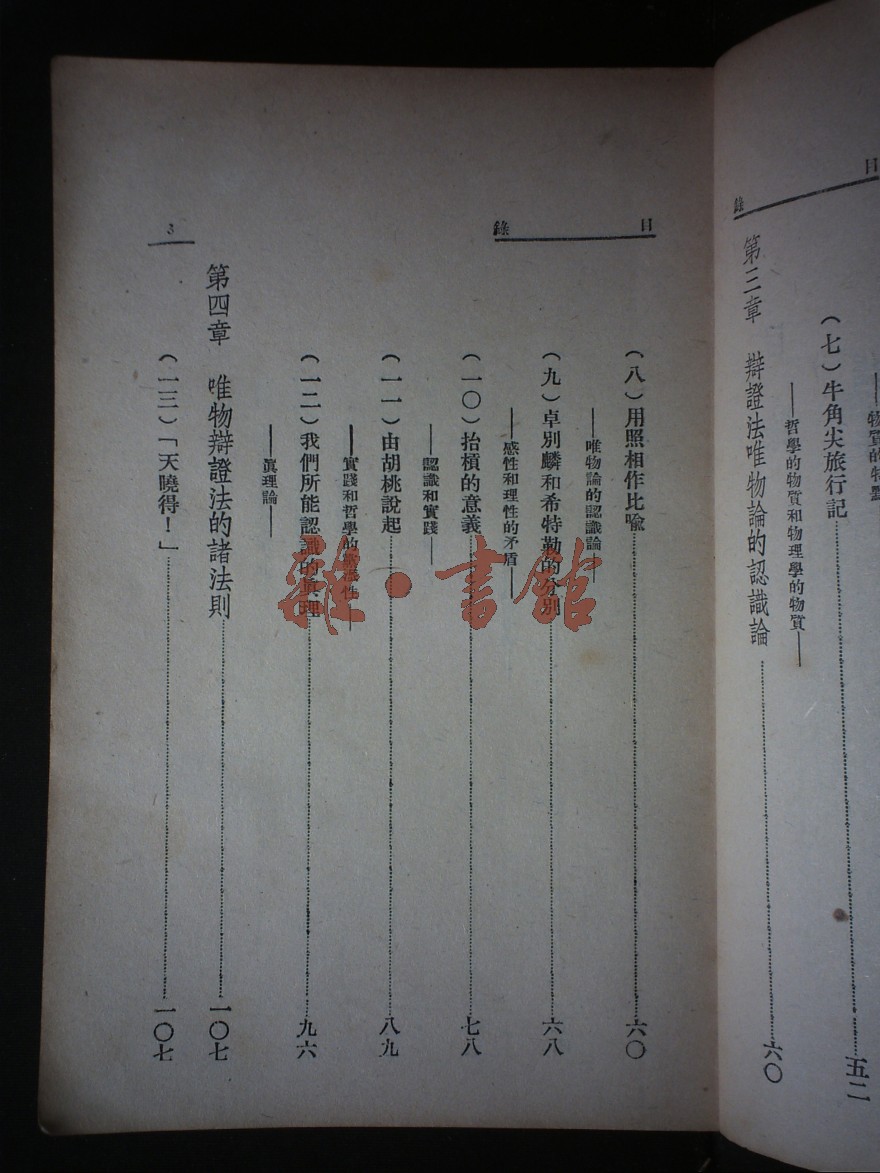 目錄
——物質的特
(七)牛角尖旅行記……五二
——哲學的物質和物理學的物質——
第三章 辯證法唯物論的認識論……六〇
目錄
(八)用照相作比喩……六〇
——唯物論的認識論——
(九)卓別麟和希特勒的分別……六八
——感性和理性的矛盾——
(一〇)抬槓的意義……七八
——認識和實踐——
(一一)由胡桃說起……八九
——實踐和哲學的性——
(一二)我們所能認識的眞理……九六
——眞理論——
第四章 唯物辯證法的諸法則……一〇七
(一三)「天曉得!」……一〇七
3
雜·書館